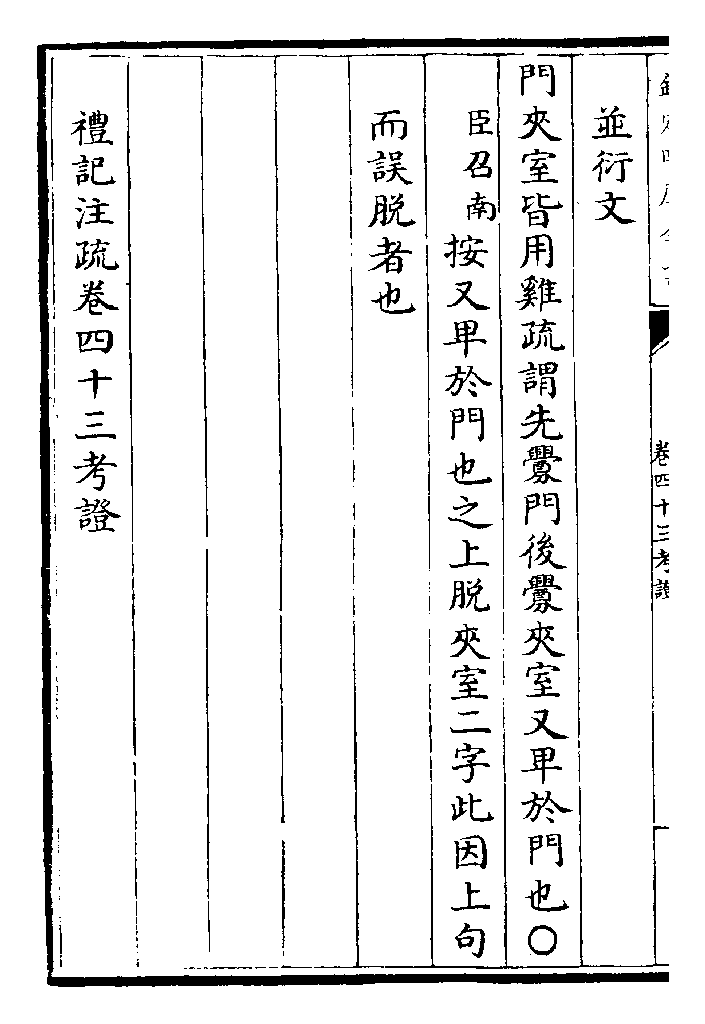 並衍文
門夾室皆用雞疏謂先釁門後釁夾室又卑於門也〇
臣召南按又卑於門也之上脱夾室二字此因上句
而誤脱者也
禮記注疏卷四十三考證
卷四十三考證